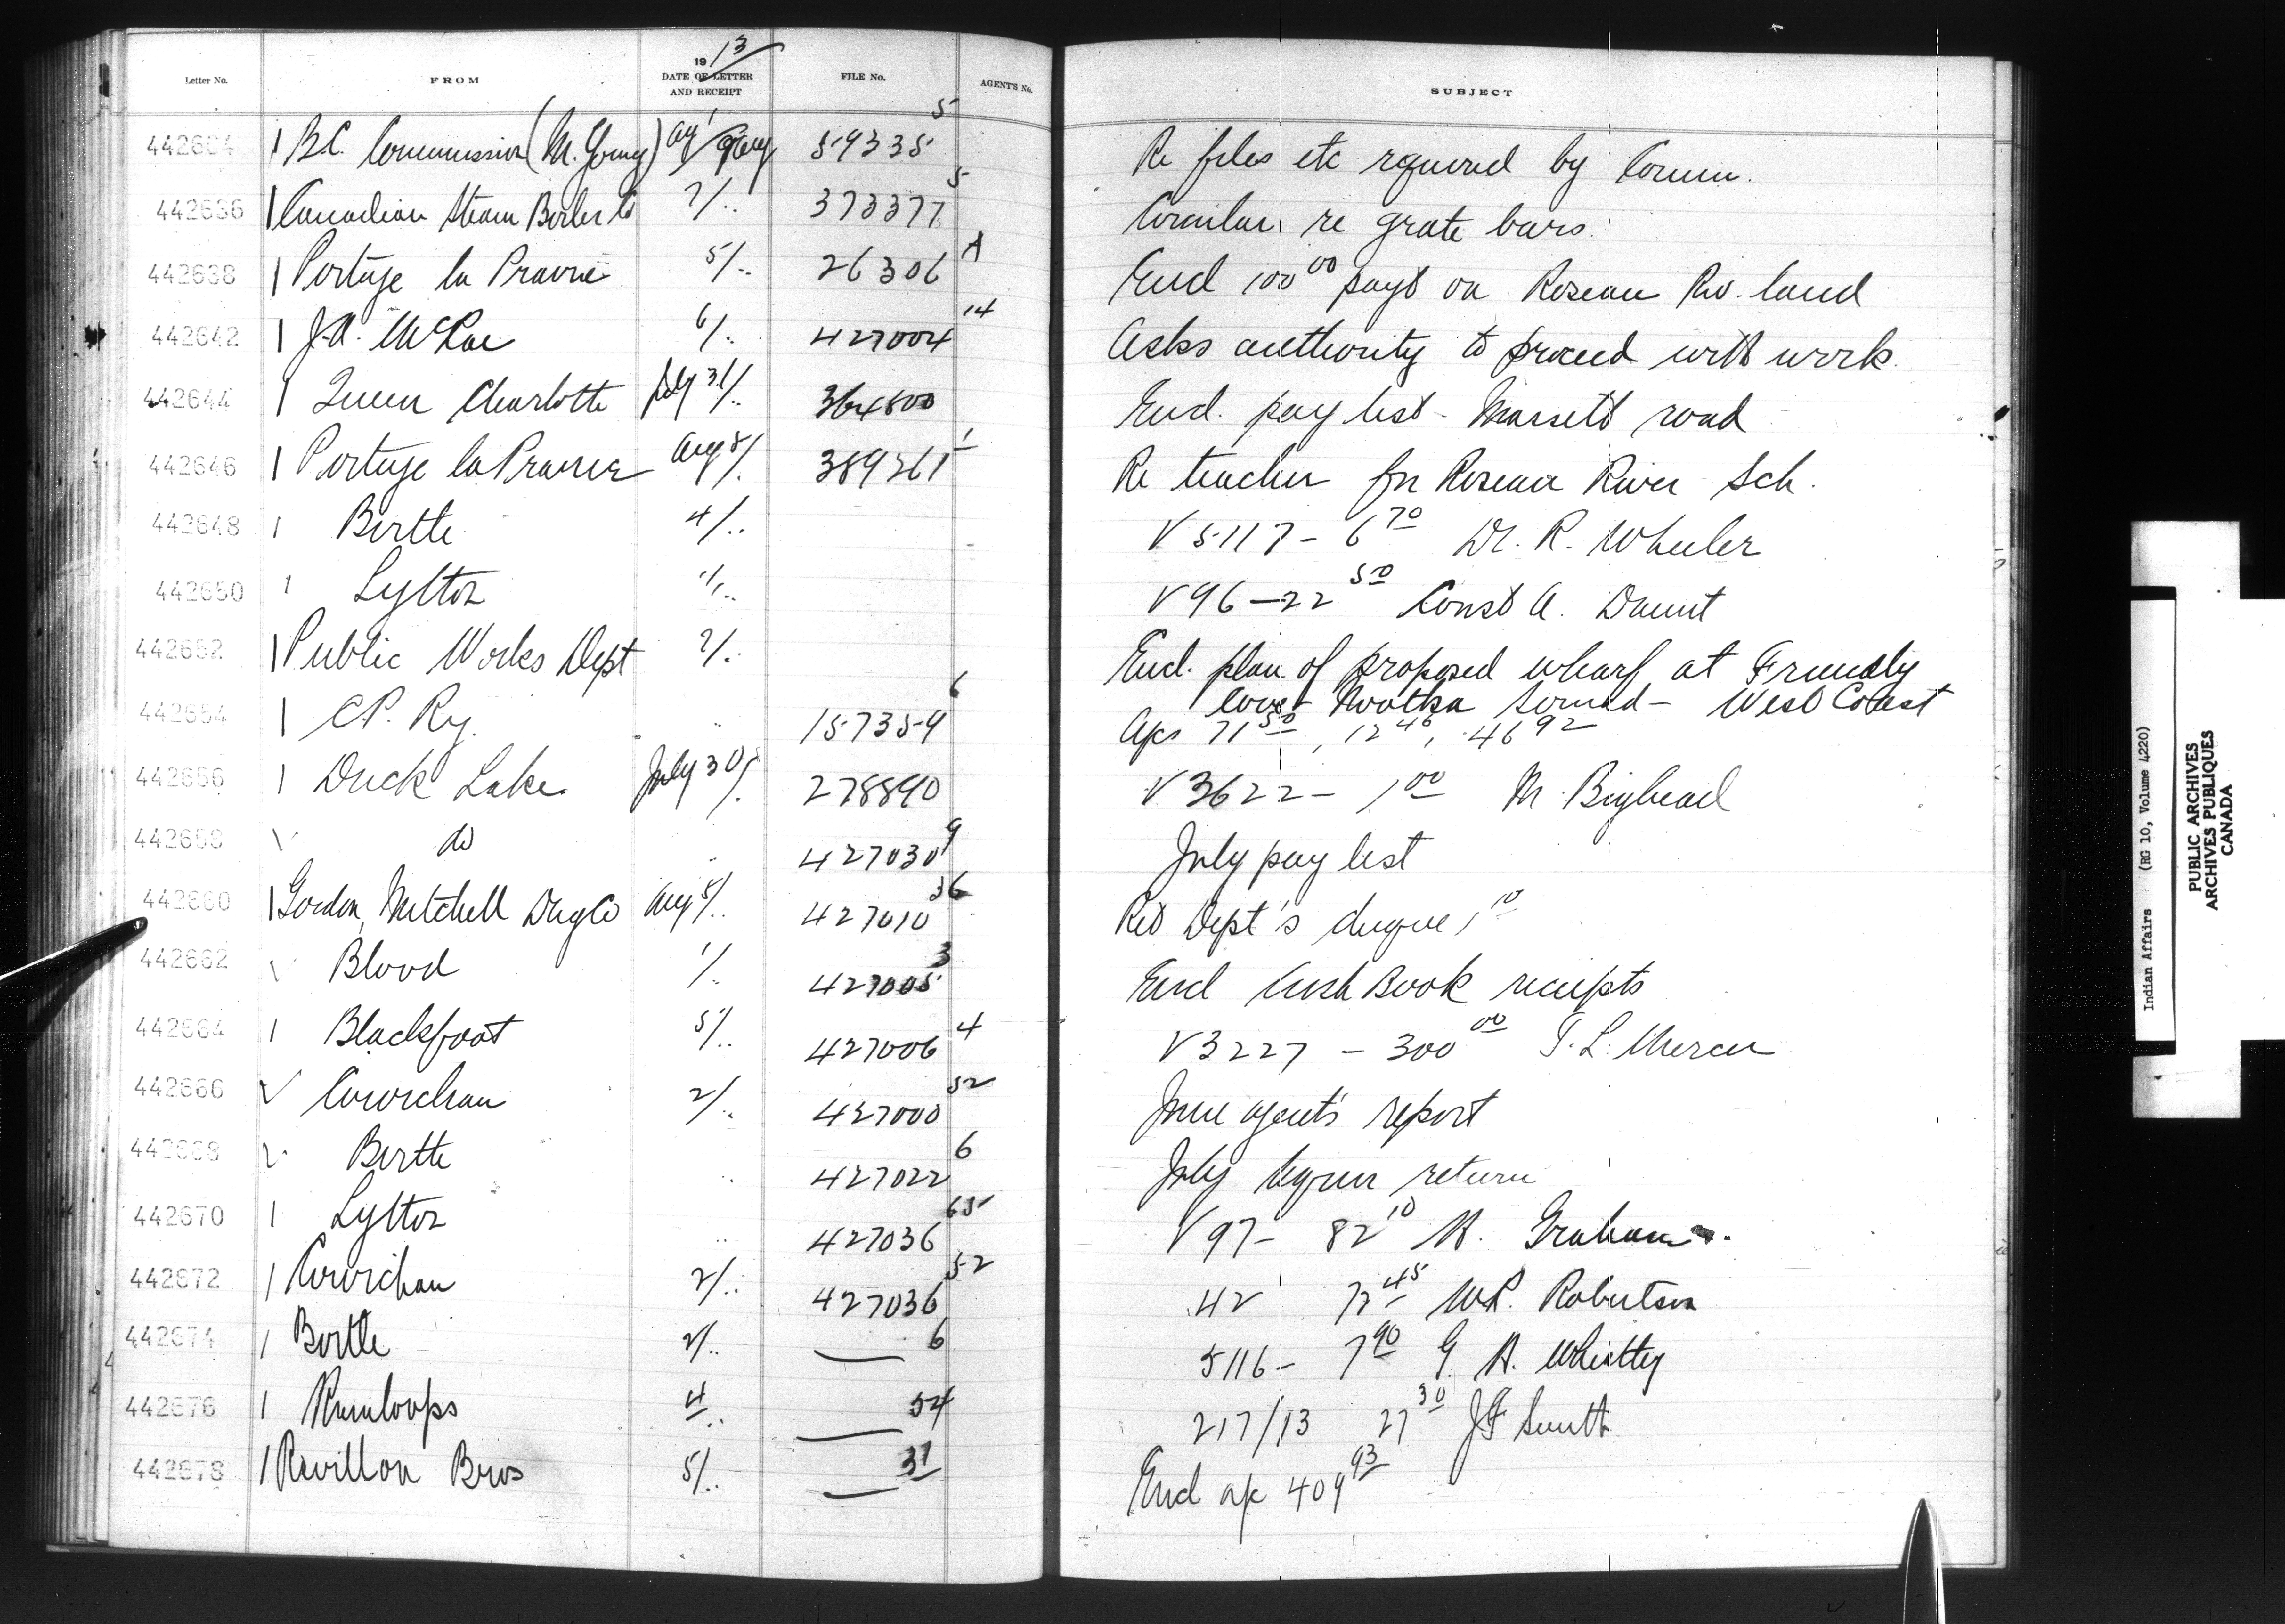 Letter No. FROM 19 13 DATE OF LETTER AND RECEIPT FILE No. AGENT'S No. SUBJECT
442634 1 B.C. Commission (M. Young) Aug 1 / 9 Aug 59335 5 Re files etc required by Comm.
442636 1 Canadian Steam Boiler Co 7/.. 373377 5 Circular re grate bars.
442638 1 Portage la Prairie 5/.. 26306 A Encl 100 00 payt on Roseau Riv. land
442642 1 J.A. McRae 6/.. 427004 14 Asks authority to proceed with work.
442644 1 Queen Charlotte July 31/.. 364800 Encl. pay list - Massett road
442646 1 Portage la Prairie Aug 5/. 389261 1 Re teacher for Roseau River Sch.
442648 1 Birtle 4/.. V 5117 - 6 70 Dr. R. Wheeler
442650 1 Lytton 1/.. V 96 - 22 50 Const A. Daunt
442652 1 Public Works Dept 2/.. Encl. plan of proposed wharf at Friendly
Cove - Nootka Sound - West Coast
442654 1 C.P. Ry. .. 157359 6 A/cs 71 50, 12 46, 46 92
442656 1 Duck Lake July 30/. 278890 V 3622 - 1 00 M. Bighead
442658 1 do .. 427030 9 July pay list
442660 1 Gordon, Mitchell Drug Co Aug 5/.. 427010 36 Ret Dept's cheque 1 10
442662 1 Blood 1/. 427005 3 Encl Cash Book receipts
442664 1 Blackfoot 5/.. 427006 4 V 3227 - 300 00 Mercer
442666 ✓ Cowichan 2/.. 427000 52 June agent's report
442668 Birtle .. 427022 6 July return
442670 1 Lytton .. 427036 65 V 97 - 82 10 H. Graham.
442672 1 Cowichan 2/.. 427036 52 42 45 W.R. Robertson
442674 1 Birtle 2/.. — 6 5116 - 7 90 G. H. Wheatley
442676 1 Kamloops 4/.. — 54 217/13 27 30 J F Smith
442678 1 Revillon Bros 5/.. — 31 Encl a/c 409 93
Indian Affairs (RG 10, Volume 4220)
PUBLIC ARCHIVES
ARCHIVES PUBLIQUES
CANADA